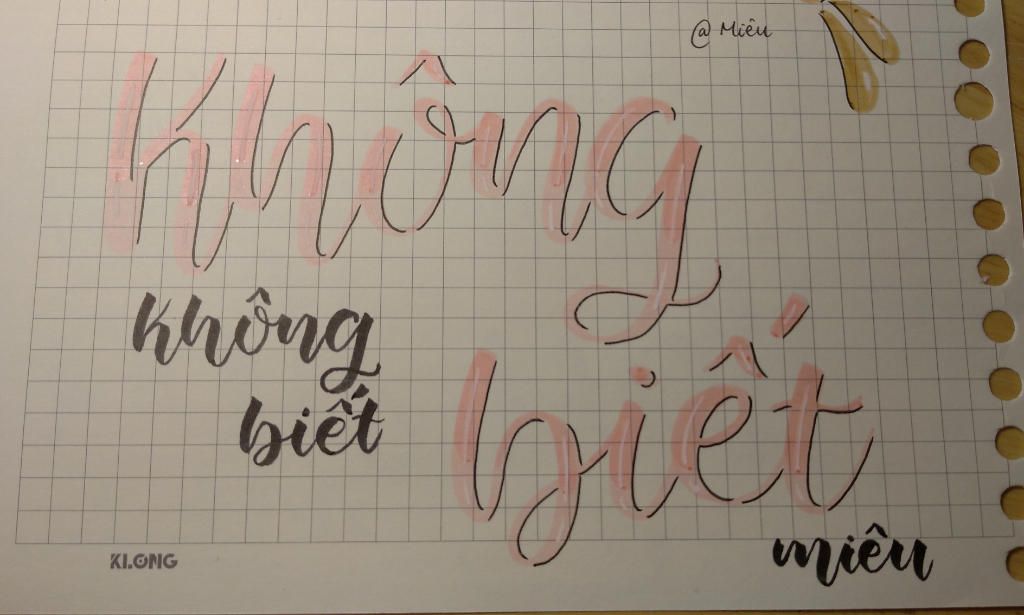 @ Miêu
Không
không
biết
biết
miêu
KLONG